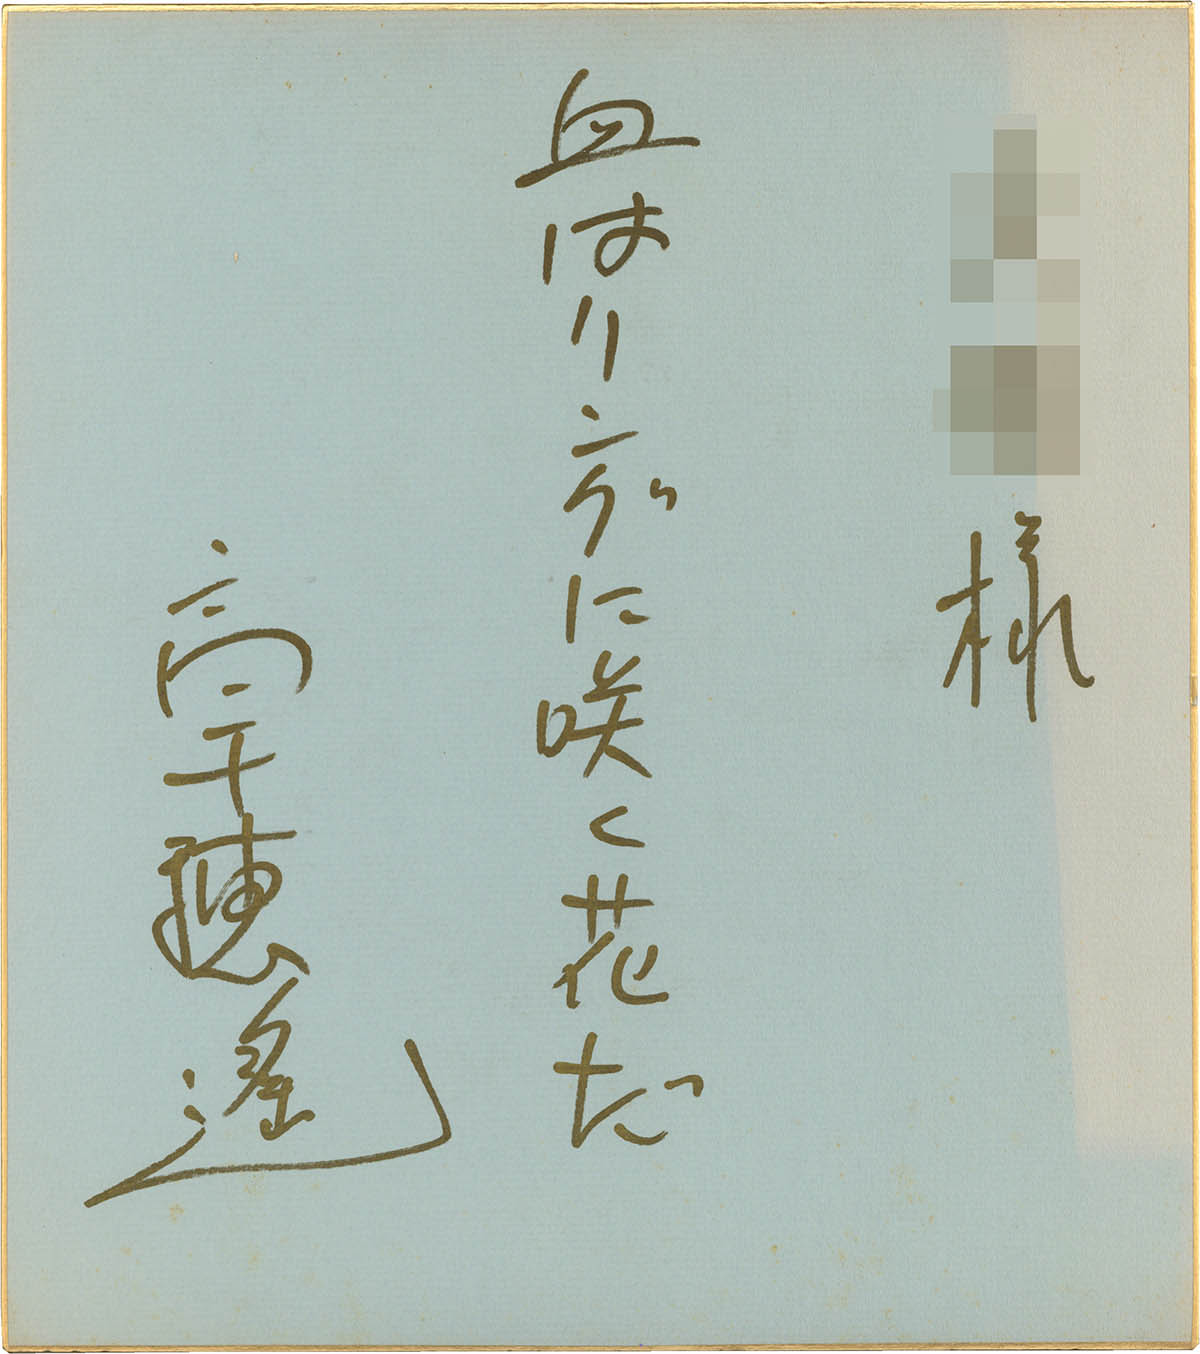 様
血はリングに咲く花だ
高千穂遙